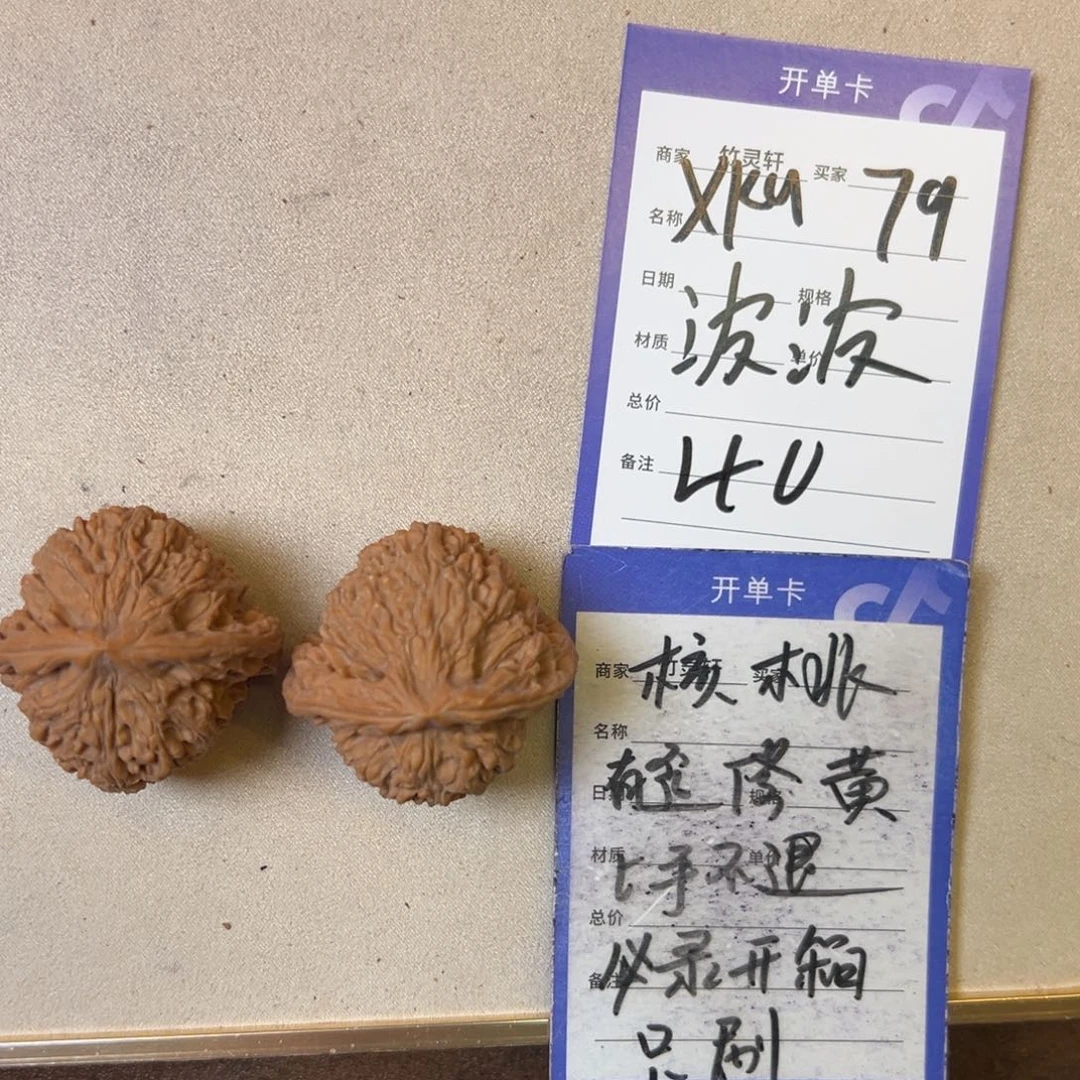 开单卡
商家 竹灵轩 买家
XK4 79
名称
日期 规格
波波
材质 单价
总价
备注 40
开单卡
商家 竹灵轩 买家
核桃
名称
有歪修黄
材质 单价
上手不退
总价
必录开箱
备注
刷